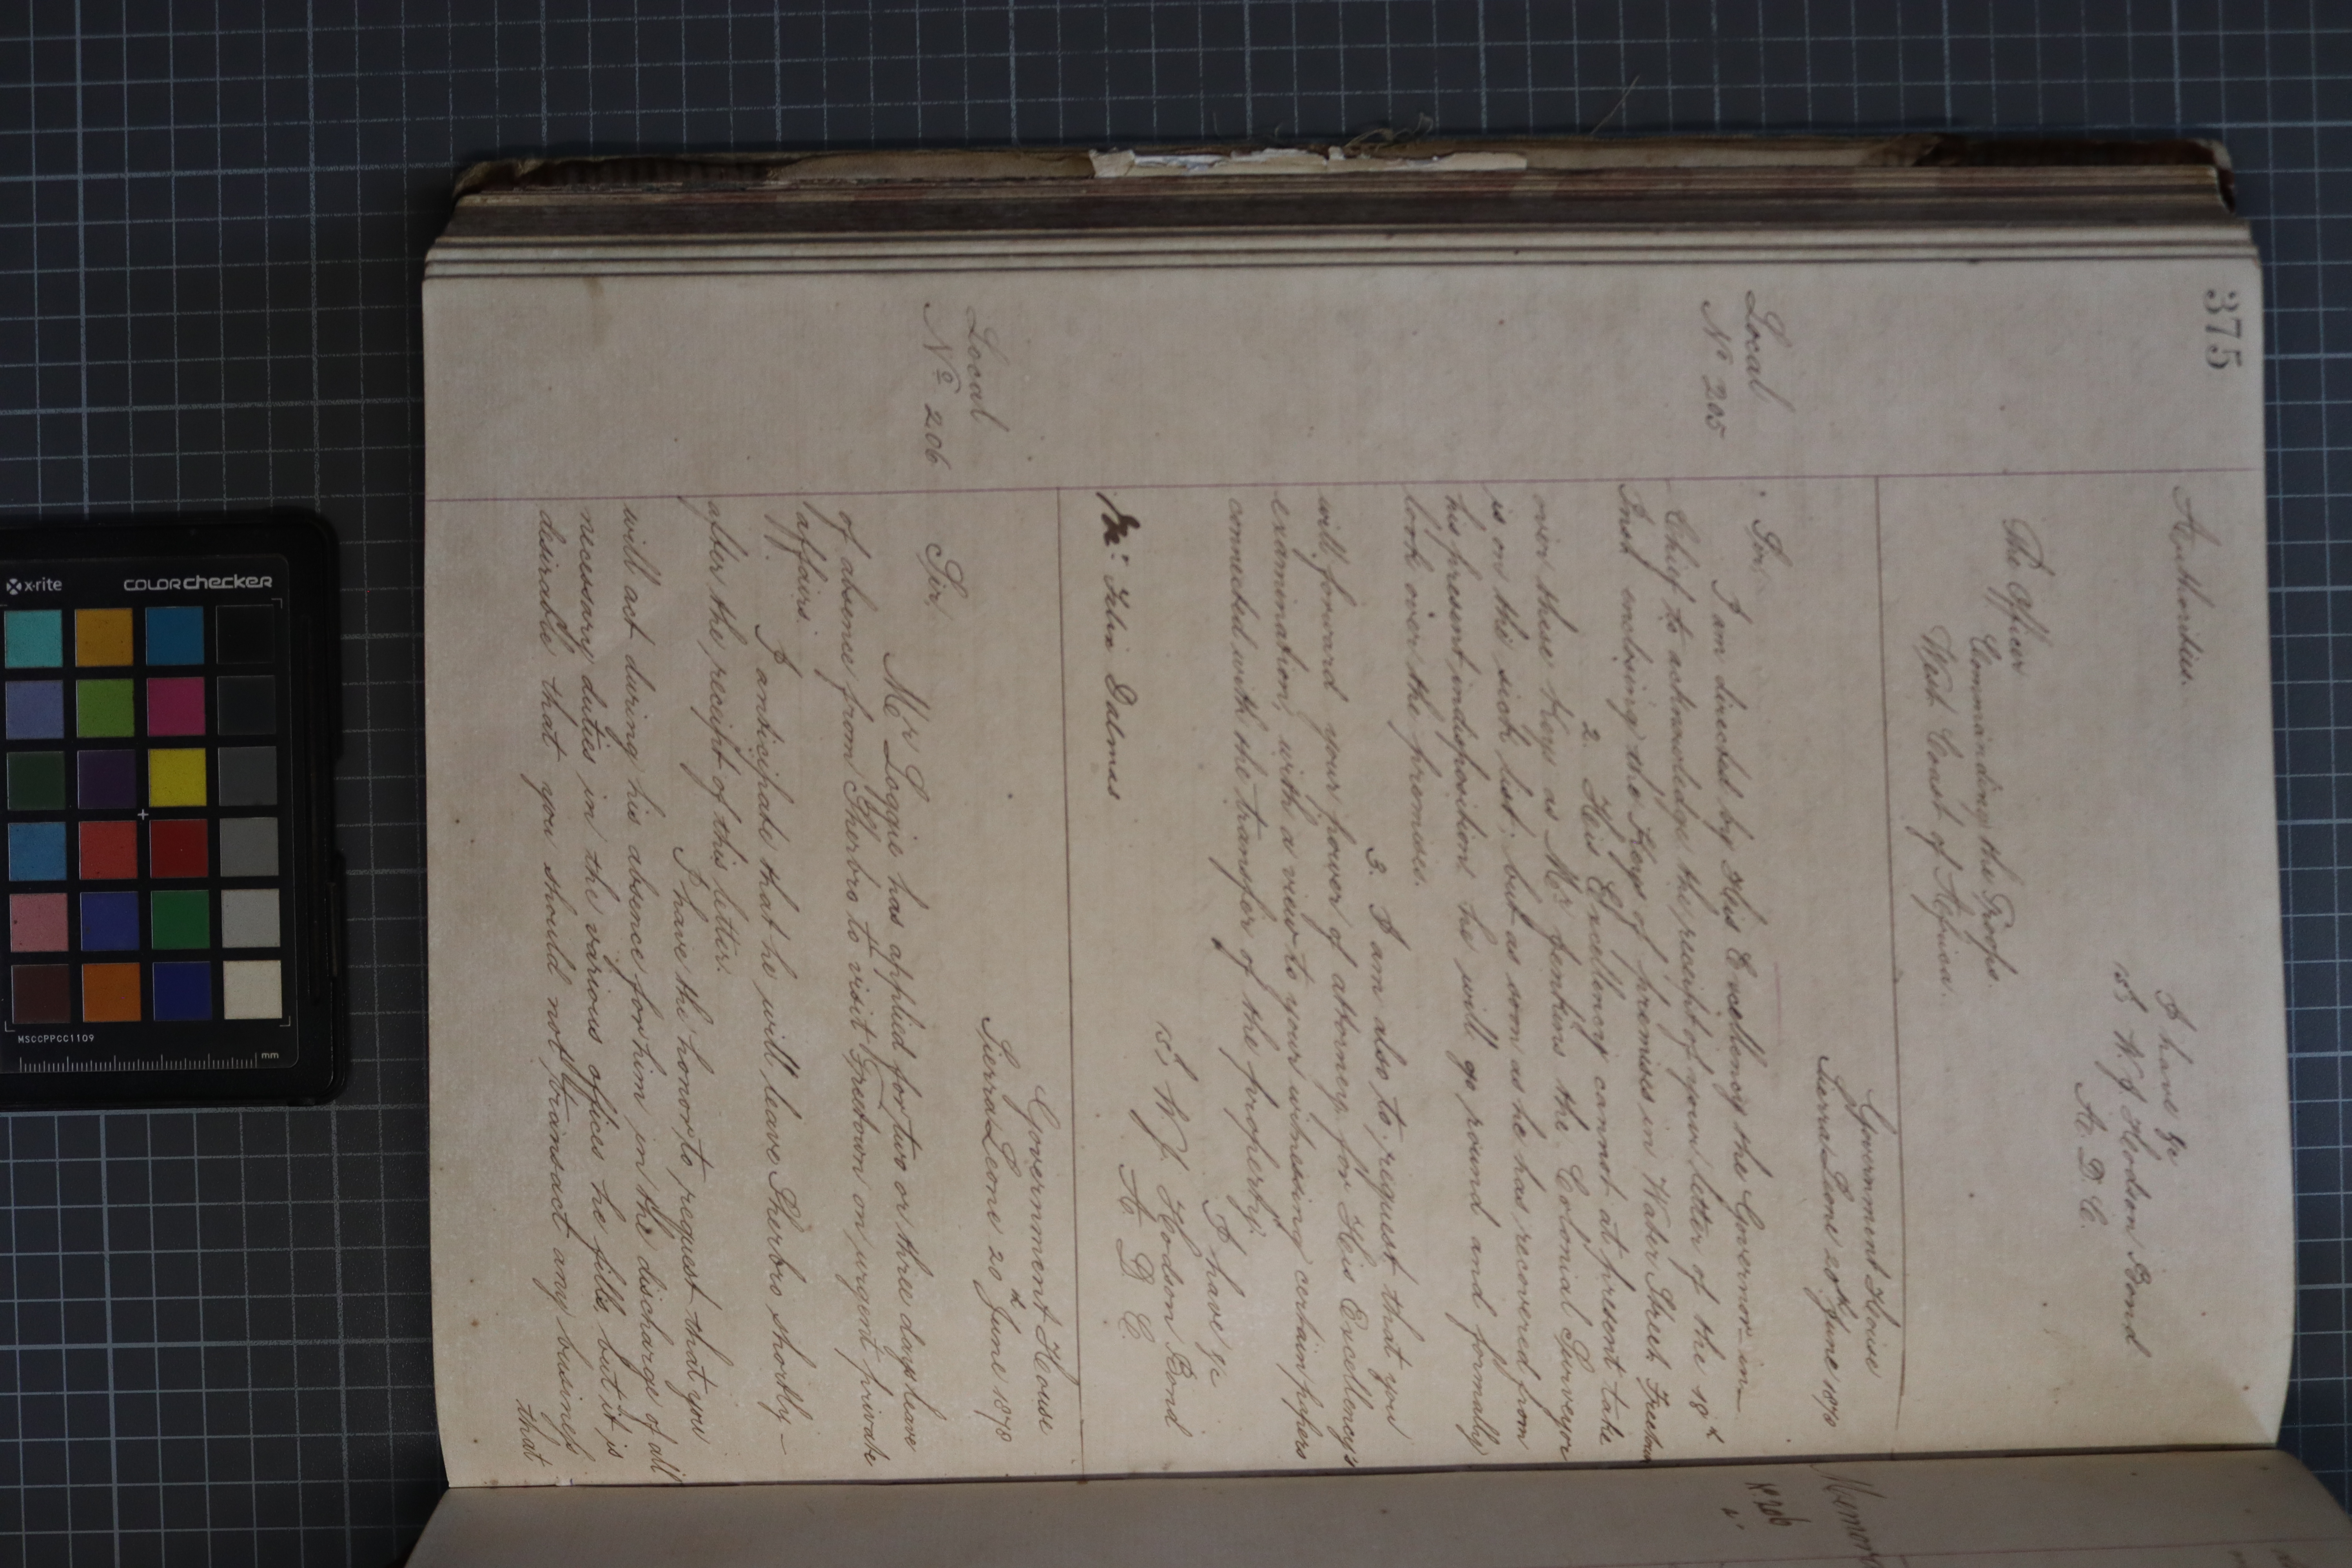 375
Authorities.
I have &c
(sd) W. J. Hodson Bond
A. D. C.
The Officer
Commanding the Troops.
West Coast of Africa.
Government House
Sierra Leone 20th June 1878
Local
No 205
Sir
I am directed by His Excellency the Governor-in-
Chief to acknowledge the receipt of your letter of the 18th
Inst enclosing the Keys of premises in Water Street Freetown
2. His Excellency cannot at present take
over these keys as Mr Jenkins the Colonial Surveyor
is on the sick list; but as soon as he has recovered from
his present indisposition he will go round and formally
look over the premises.
3. I am also to request that you
will forward your power of attorney for His Excellency's
examination, with a view to your witnessing certain papers
connected with the transfer of the property.
I have &c
(sd) W. J. Hodson Bond
A D C.
Felix Dalmas
Government House
Sierra Leone 20th June 1878
Local
No 206
Sir
Mr Loggie has applied for two or three days leave
of absence from Sherbro to visit Freetown on urgent private
affairs.
I anticipate that he will leave Sherbro shortly -
after the receipt of this letter.
I have the honor to request that you
will act during his absence for him in the discharge of all
necessary duties in the various offices he fills, but it is
desirable that you should not transact any business
that
No 206
x-rite
colorchecker
MSCCPPCC1109
mm